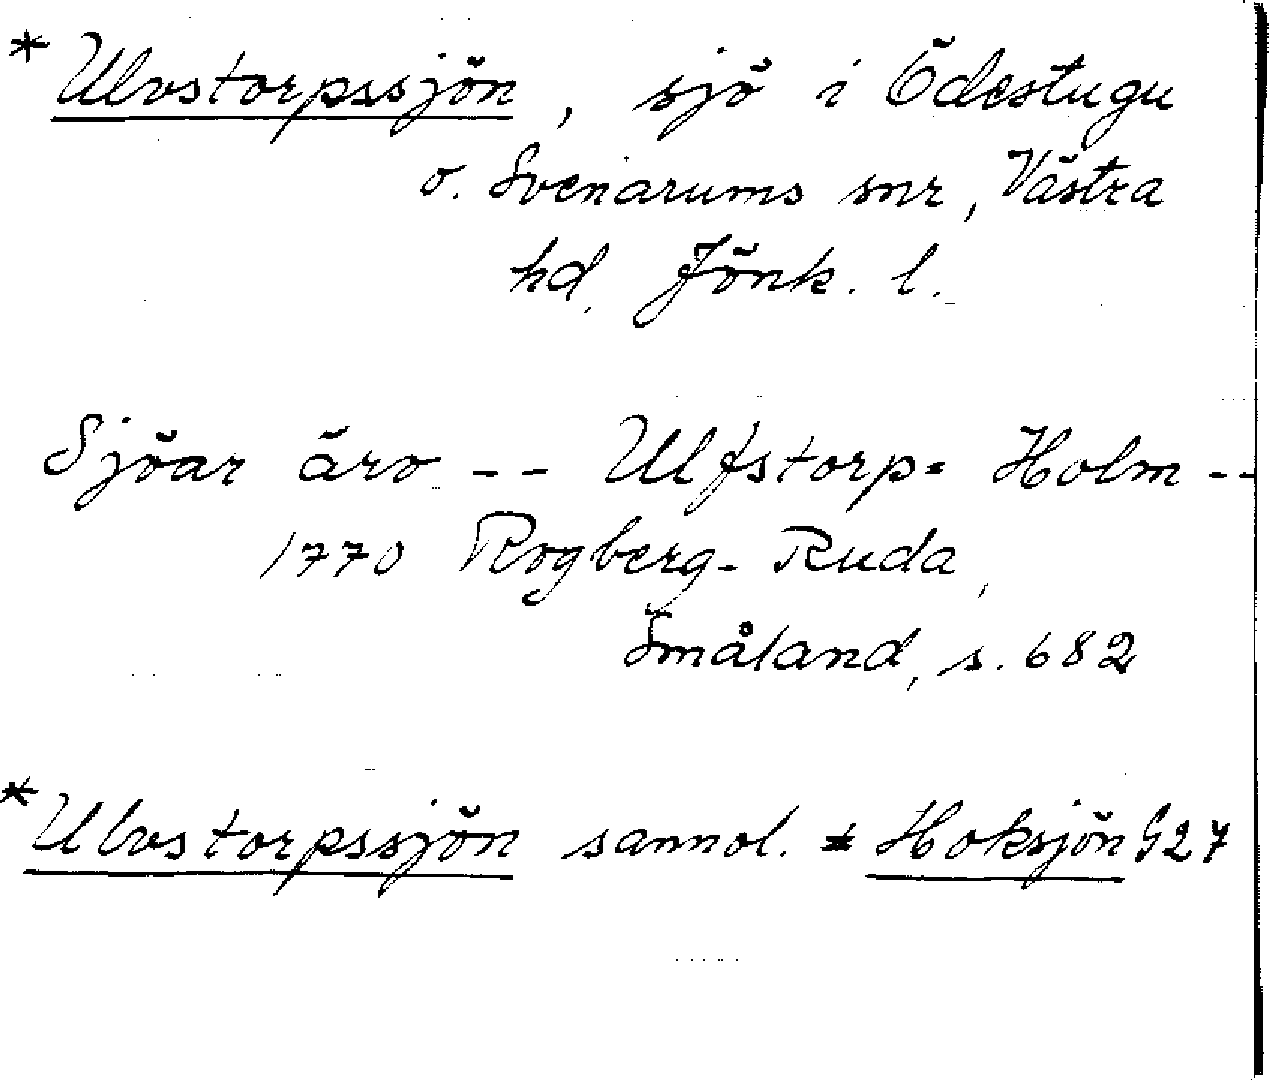 * Ulvstorpssjön, sjö i Ödestugu
o. Svenarums snr, Västra
hd, Jönk. l.
Sjöar äro -- Ulfstorp= Holm --
1770 Rogberg-Ruda,
Småland, s. 682
* Ulvstorpssjön sannol. * Hoksjön G27